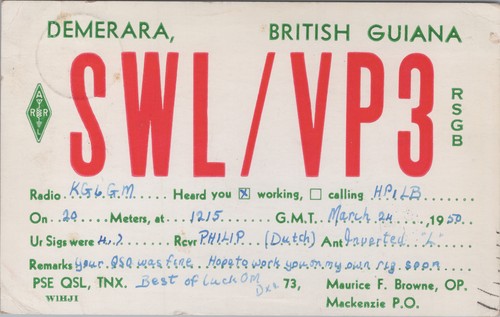 DEMERARA, BRITISH GUIANA
SWL/VP3
RSGB
A
R R
L
Radio KG6GM Heard you ☒ working, ☐ calling HP1LB
On 20 Meters, at 1215 G.M.T. March 24 1950
Ur Sigs were Rcvr PHILIP (Dutch) Ant Inverted "L"
Remarks Your QSO was fine. Hope to work you on my own rig soon
PSE QSL, TNX. Best of Luck OM 73, Maurice F. Browne, OP.
W1HJI Mackenzie P.O.